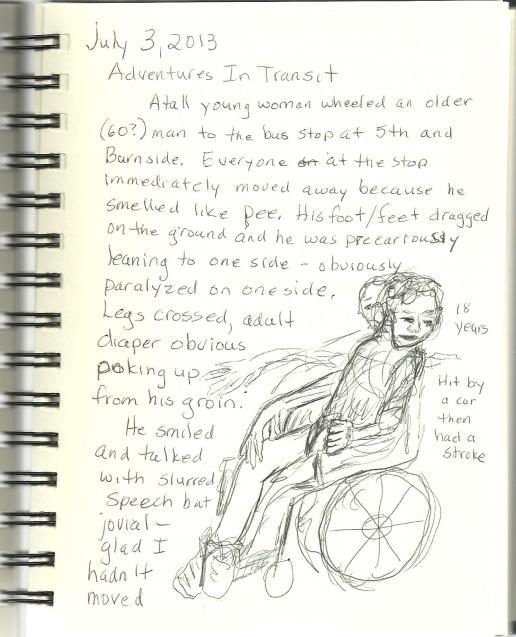 July 3, 2013
Adventures In Transit
A tall young woman wheeled an older
(60?) man to the bus stop at 5th and
Burnside. Everyone at the stop
immediately moved away because he
smelled like pee. His foot/feet dragged
on the ground and he was precariously
leaning to one side - obviously
paralyzed on one side.
Legs crossed, adult
diaper obvious
poking up
from his groin.
He smiled
and talked
with slurred
Speech but
jovial -
glad I
hadn't
moved
18
years
Hit by
a car
then
had a
stroke